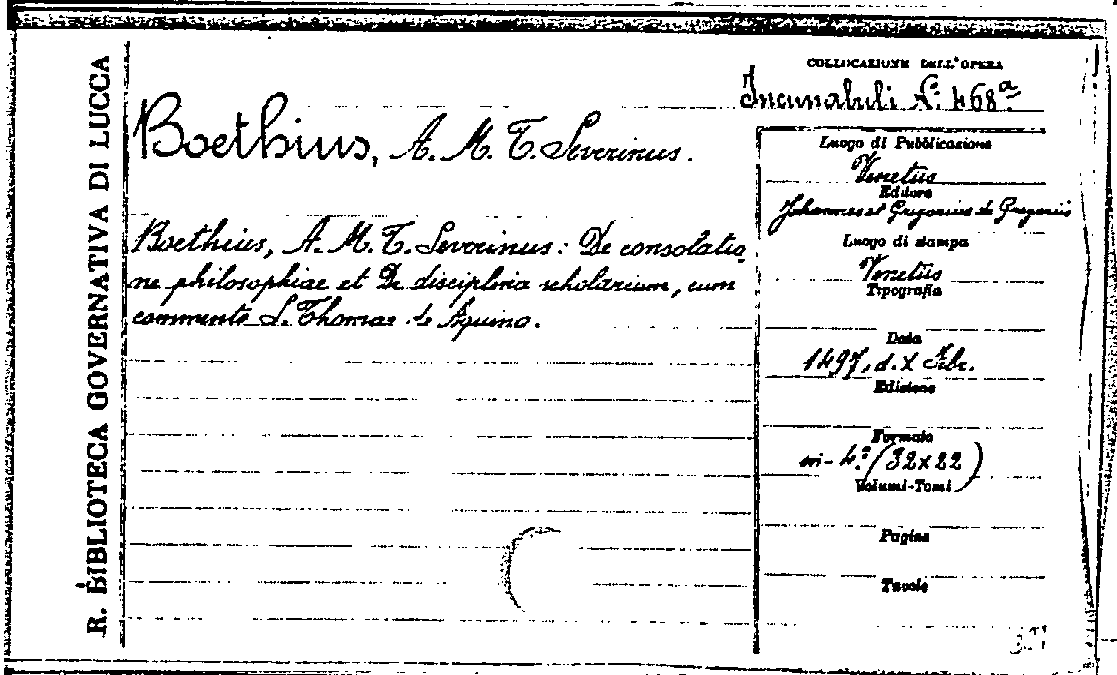 R. BIBLIOTECA GOVERNATIVA DI LUCCA
COLLOCAZIONE DELL'OPERA
Incunabuli N.° 468ª
Boethius, A. M. T. Severinus.
Boethius, A. M. T. Severinus: De consolatio
ne philosophiae et De disciplina scholarium, cum
commento S. Thomae de Aquino.
Luogo di Pubblicazione
Venetiis
Editore
Johannes et Gregorius de Gregoriis
Luogo di stampa
Venetiis
Tipografia
Data
1497, d. X Febr.
Edizione
Formato
in-4.° (32x22)
Volumi-Tomi
Pagine
Tavole